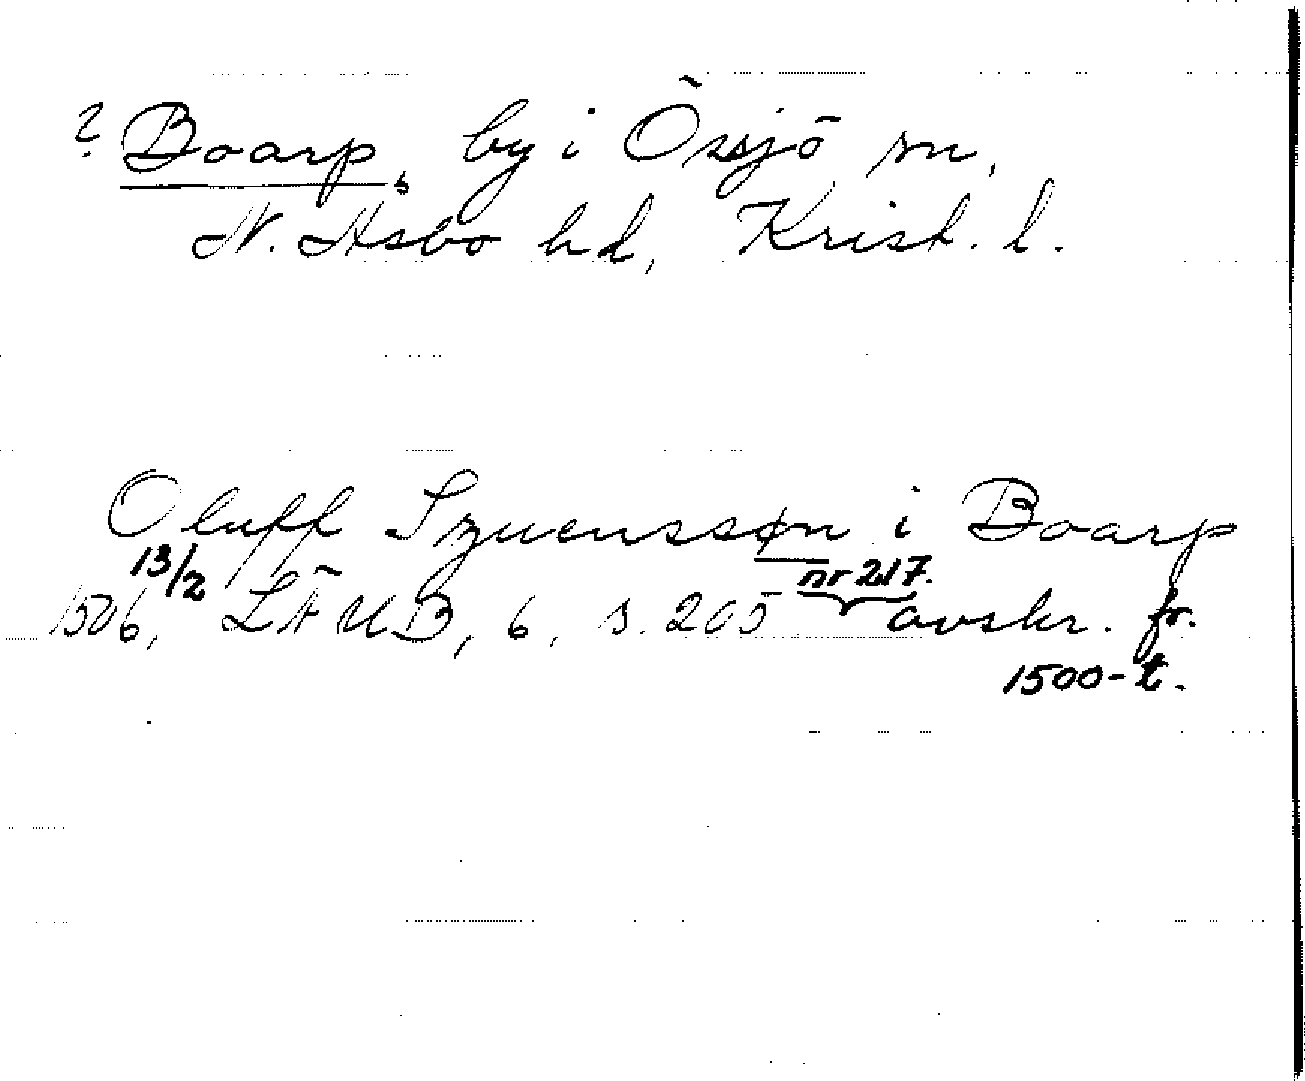 ? Boarp, by i Össjö sn,
N. Åsbo hd, Krist. l.
Oluff Szuenssøn i Boarp
13/2 nr 217.
1506, LÄUB, 6, s. 205 avskr. fr.
1500-t.